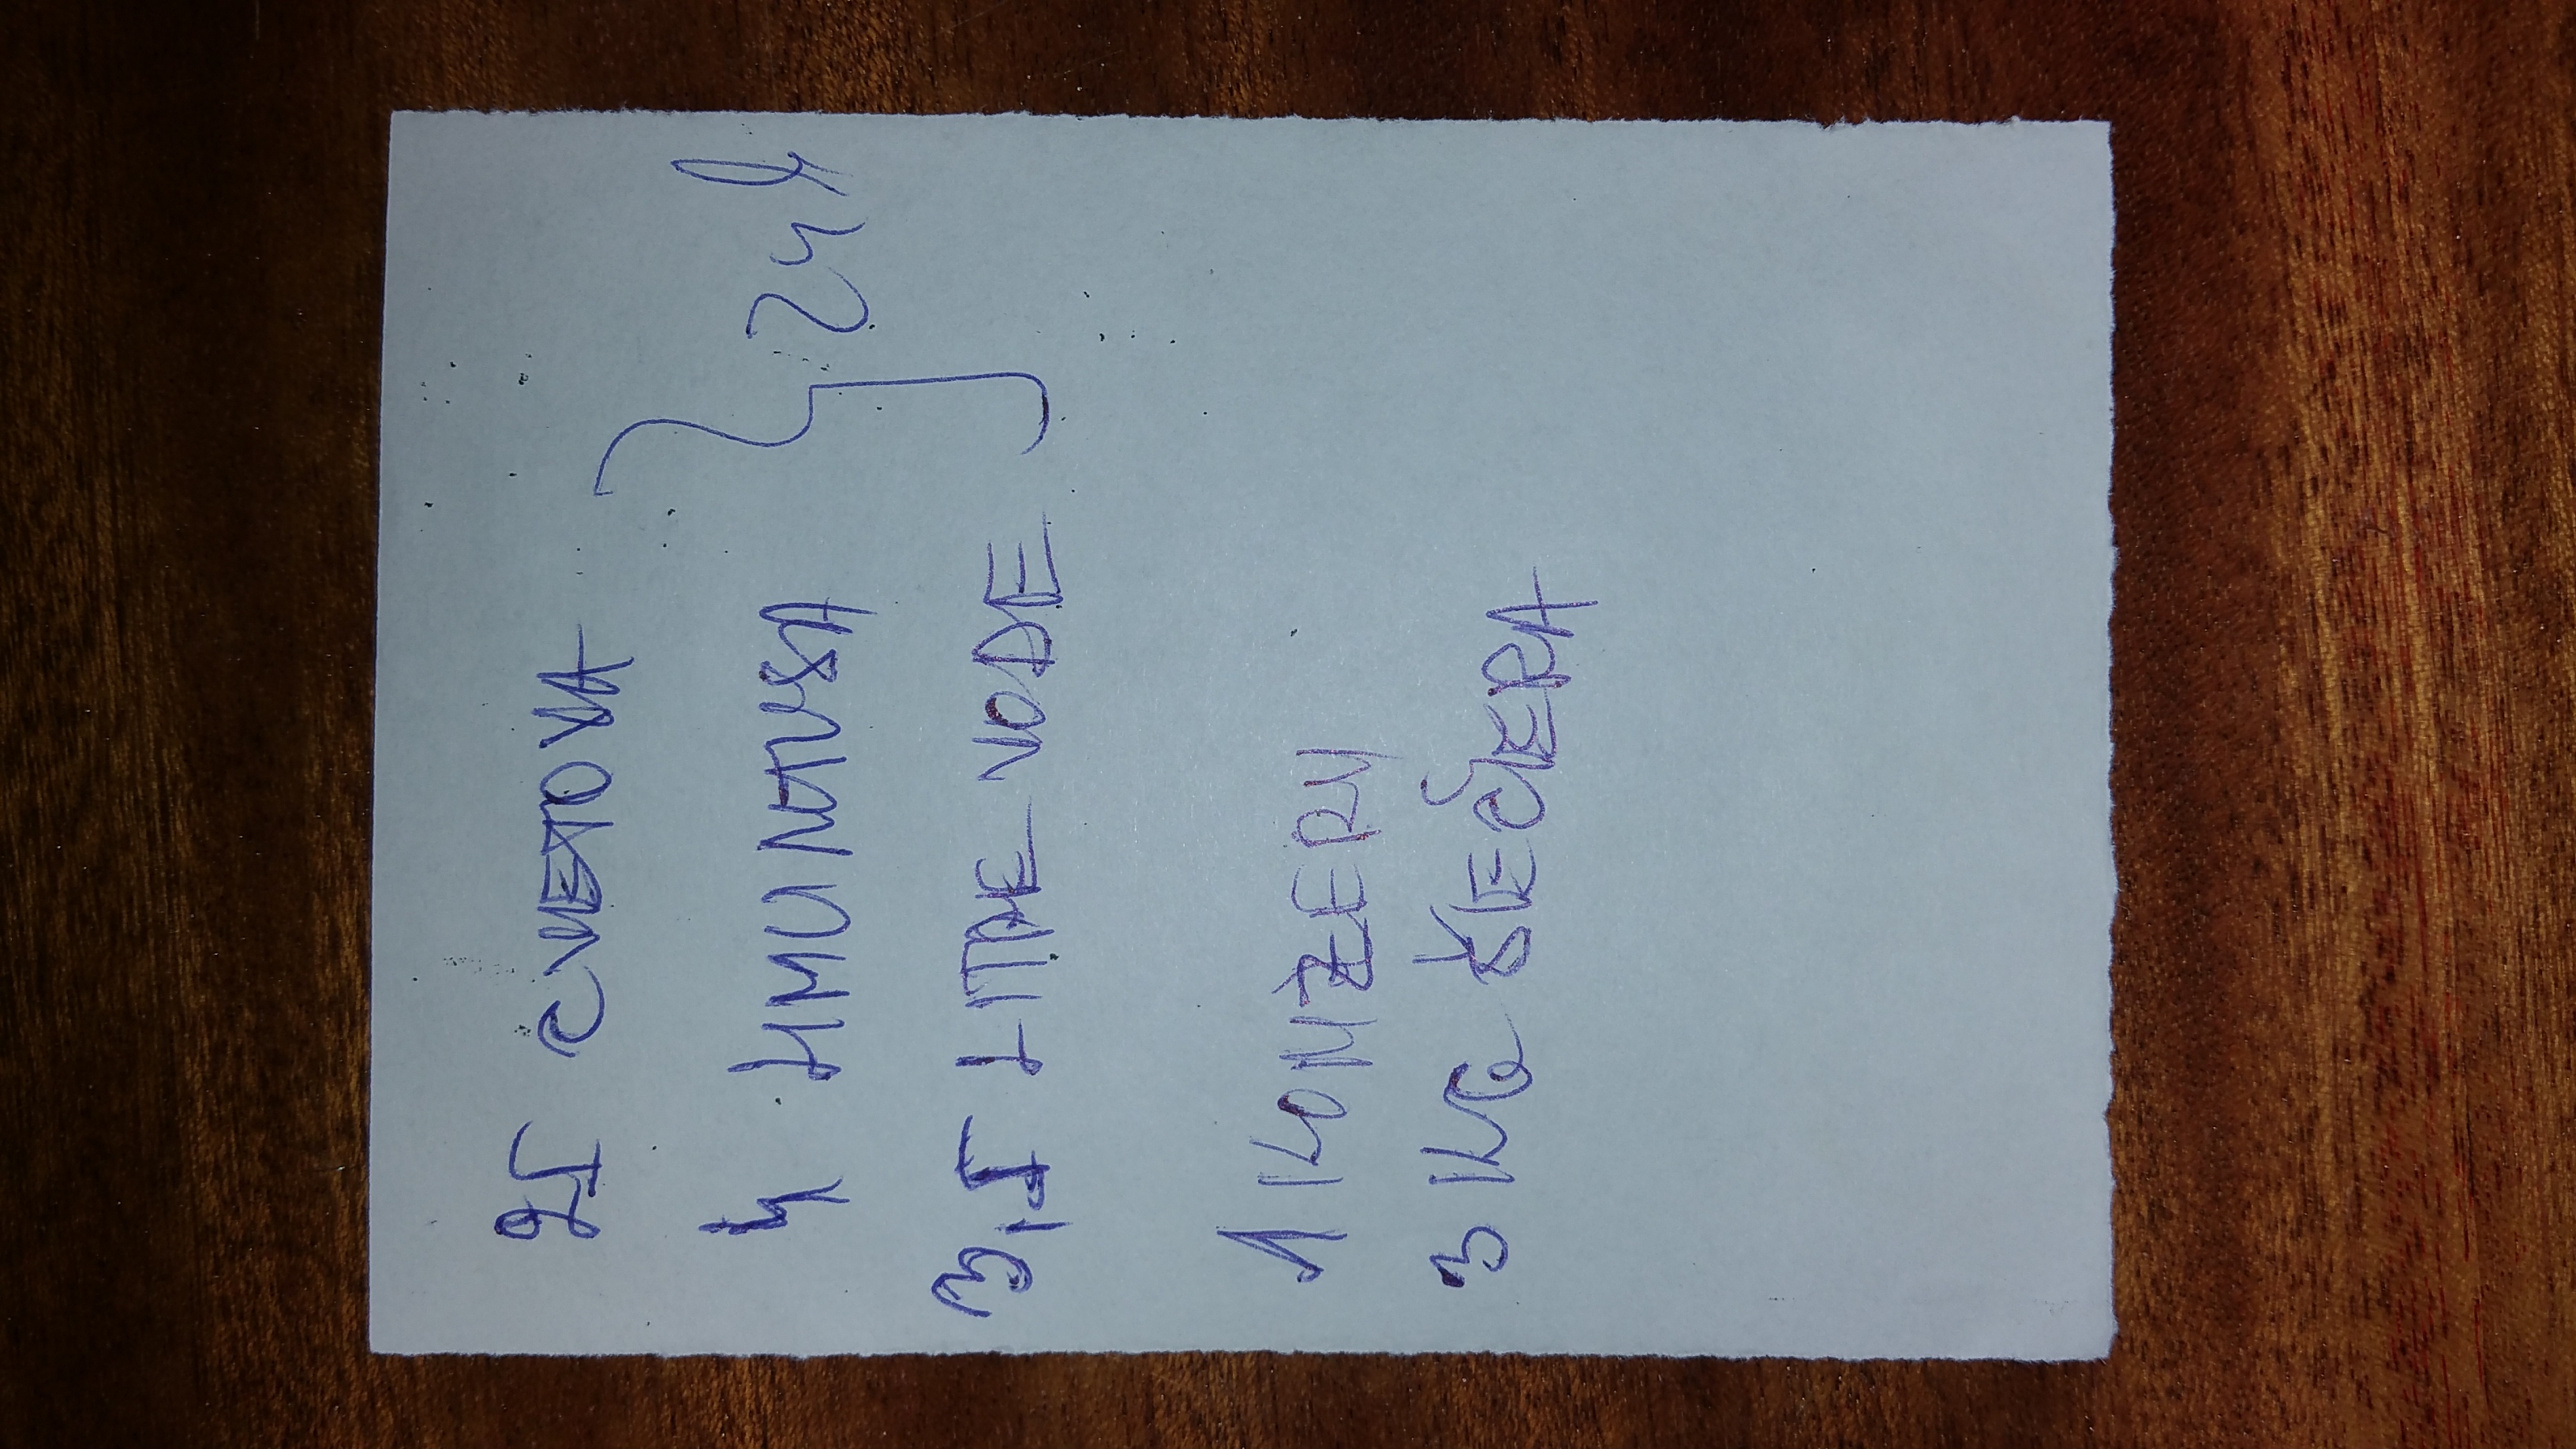 25 CVIJETOVA
4 LIMUNTUSA
3,5 LITRE VODE
24h
1 KONZERV
3 KG ŠEĆERA